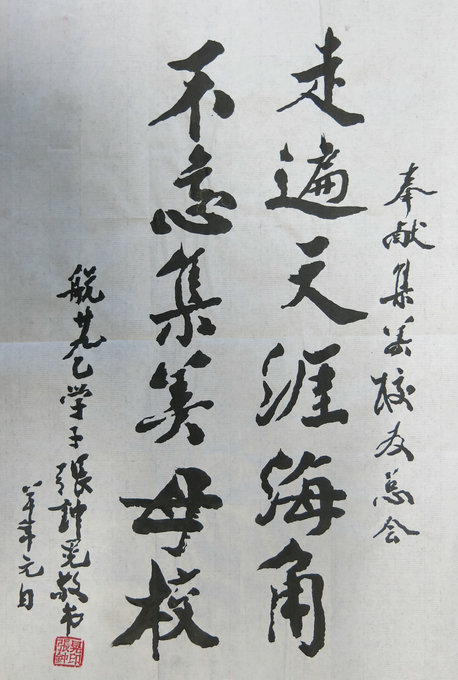 奉献集美校友总会
走遍天涯海角
不忘集美母校
航 乙学子張钟晃敬书
羊年元日